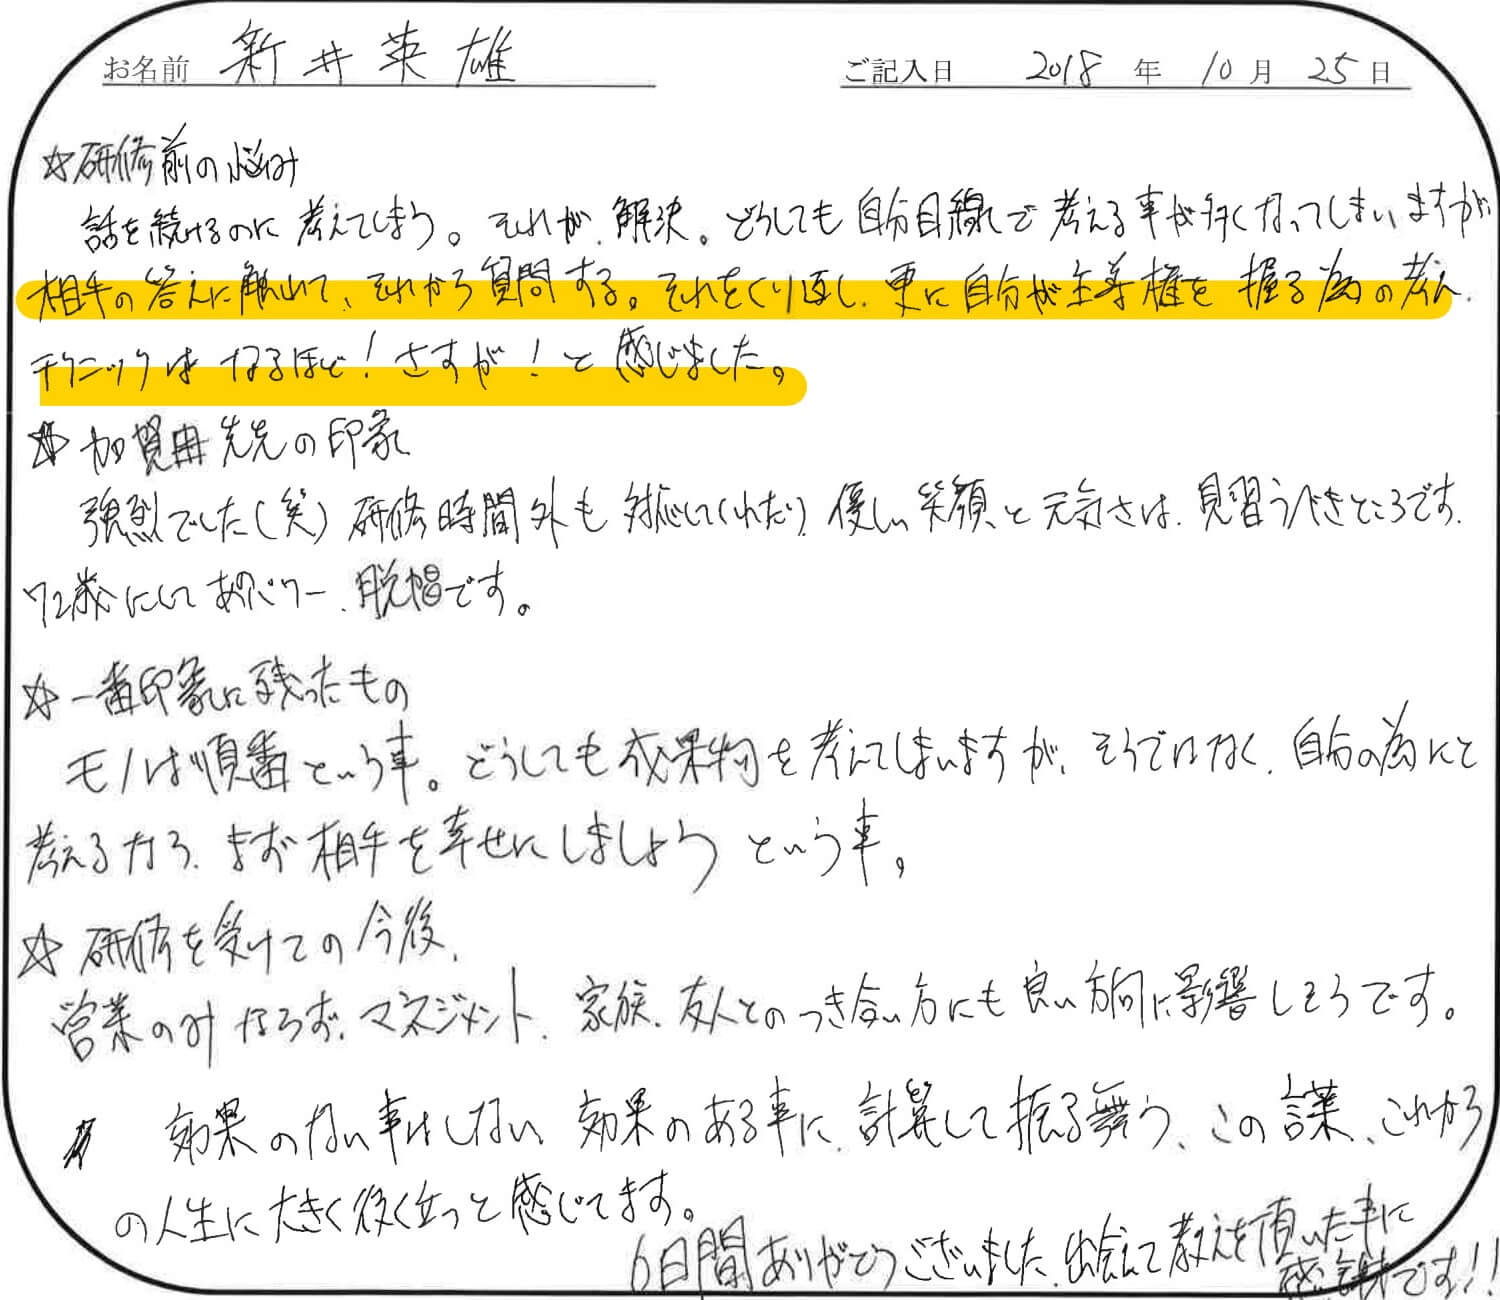 お名前 新井英雄 ご記入日 2018年10月25日
☆研修前の悩み
話を続けるのに考えてしまう。それが、解決。どうしても自分目線で考える事が多くなってしまいますが、
相手の答えに触れて、それから質問する。それをくり返し、更に自分が主導権を握る為の考え、
テクニックはなるほど!さすが!と感じました。
☆加賀田先生の印象
強烈でした(笑)研修時間外も対応してくれたり、優しい笑顔と元気さは、見習うべきところです。
72歳にしてあのパワー、脱帽です。
☆一番印象に残ったもの
モノは順番という事。どうしても成果物を考えてしまいますが、そうではなく、自分の為にと
考えるなら、まず相手を幸せにしましょうという事。
☆研修を受けての今後、
営業のみならず、マネジメント、家族、友人とのつき合い方にも良い方向に影響しそうです。
効果のない事はしない、効果のある事に、計算して振る舞う、この言葉、これから
の人生に大きく役く立つと感じてます。
6日間ありがとうございました、出会えて教えを頂いた事に
感謝です!!